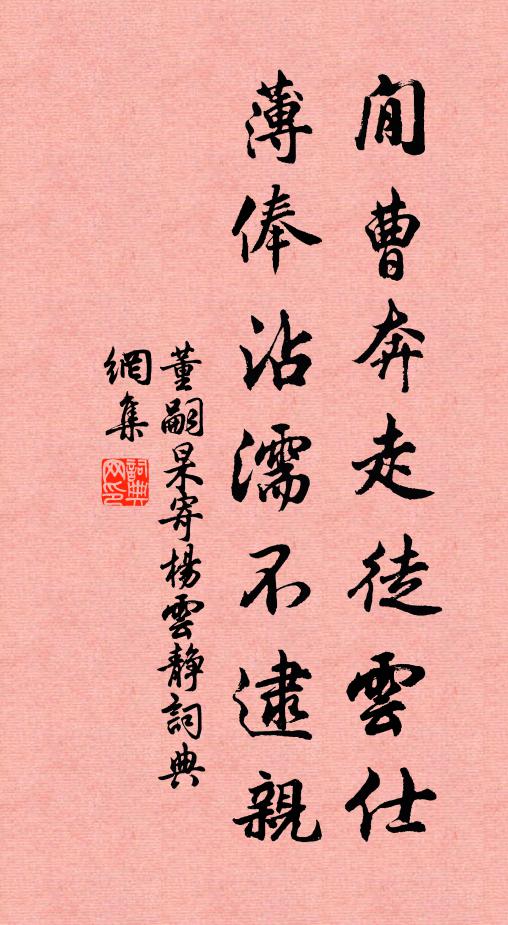 閒曹奔走徒雲仕
薄俸沾濡不逮親
董嗣杲寄楊雲靜詞典
網集
詞典
網印